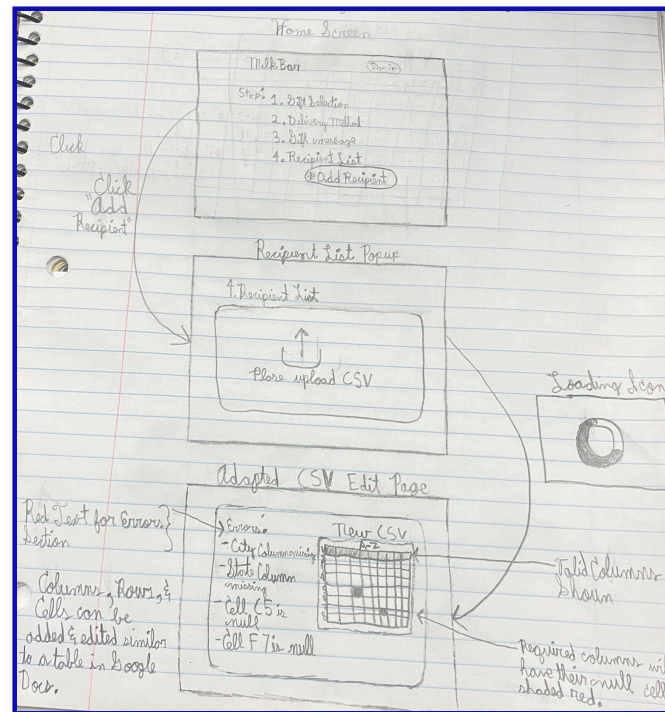 Home Screen
MilkBar
Sign in
Steps:
1. Gift Selection
2. Delivery Method
3. Gift message
4. Recipient List
Add Recipient
Click
Click
"Add
Recipient"
Recipient List Popup
4. Recipient List
Please upload CSV
Loading Icon
Adapted CSV Edit Page
Red Text for Errors
Section
Errors:
- City Column missing
- State Column
missing
- Cell C5 is
null
- Cell F7 is null
New CSV
A-Z
Valid Columns
Shown
Columns, Rows, &
Cells can be
added & edited similar
to a table in Google
Docs.
Required columns
have their null
shaded red.